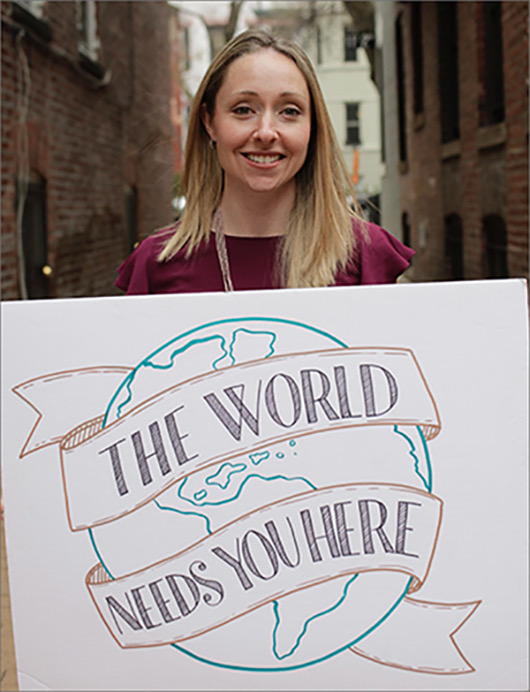 THE WORLD
NEEDS YOU HERE